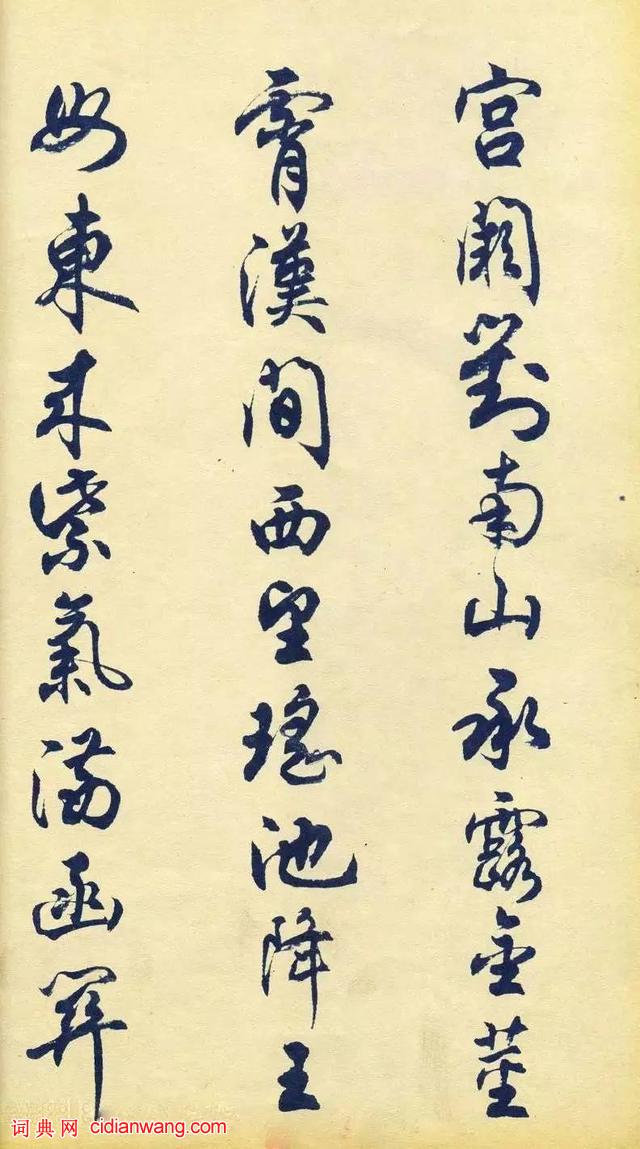 宫阙對南山承露金莖
霄漢间西望瑶池降王
母東来紫氣满函関
词典网 cidianwang.com